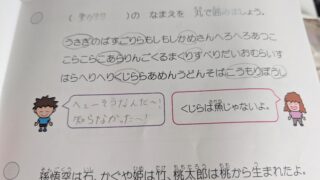 ( )の なまえを ○で囲みましょう。
うさぎのばすごりらもしもしかめさんへろへろあつこ
こらこらこあらりんごくるまくりすべりだいおむらいす
はらへりへりくじらあめんうどんそばこうもりぼうし
へぇーそうなんだ〜!
知らなかった〜!
くじらは魚じゃないよ。
孫悟空は石、かぐや姫は竹、桃太郎は桃から生まれたよ。